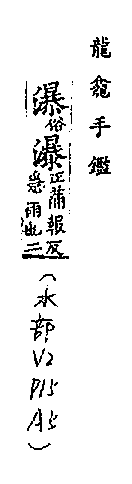 龍龕手鑑
瀑俗瀑正蒲報反雨也二
(水部V2P15A5)